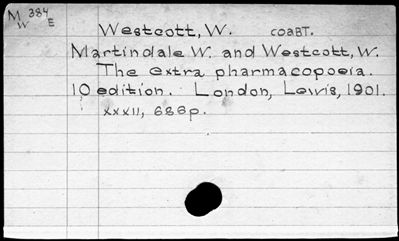 M 384
W E
Westcott, W. соавт.
Martindale W. and Westcott, W.
The extra pharmacopoeia.
10 edition. London, Lewis, 1901.
xxxii, 686p.